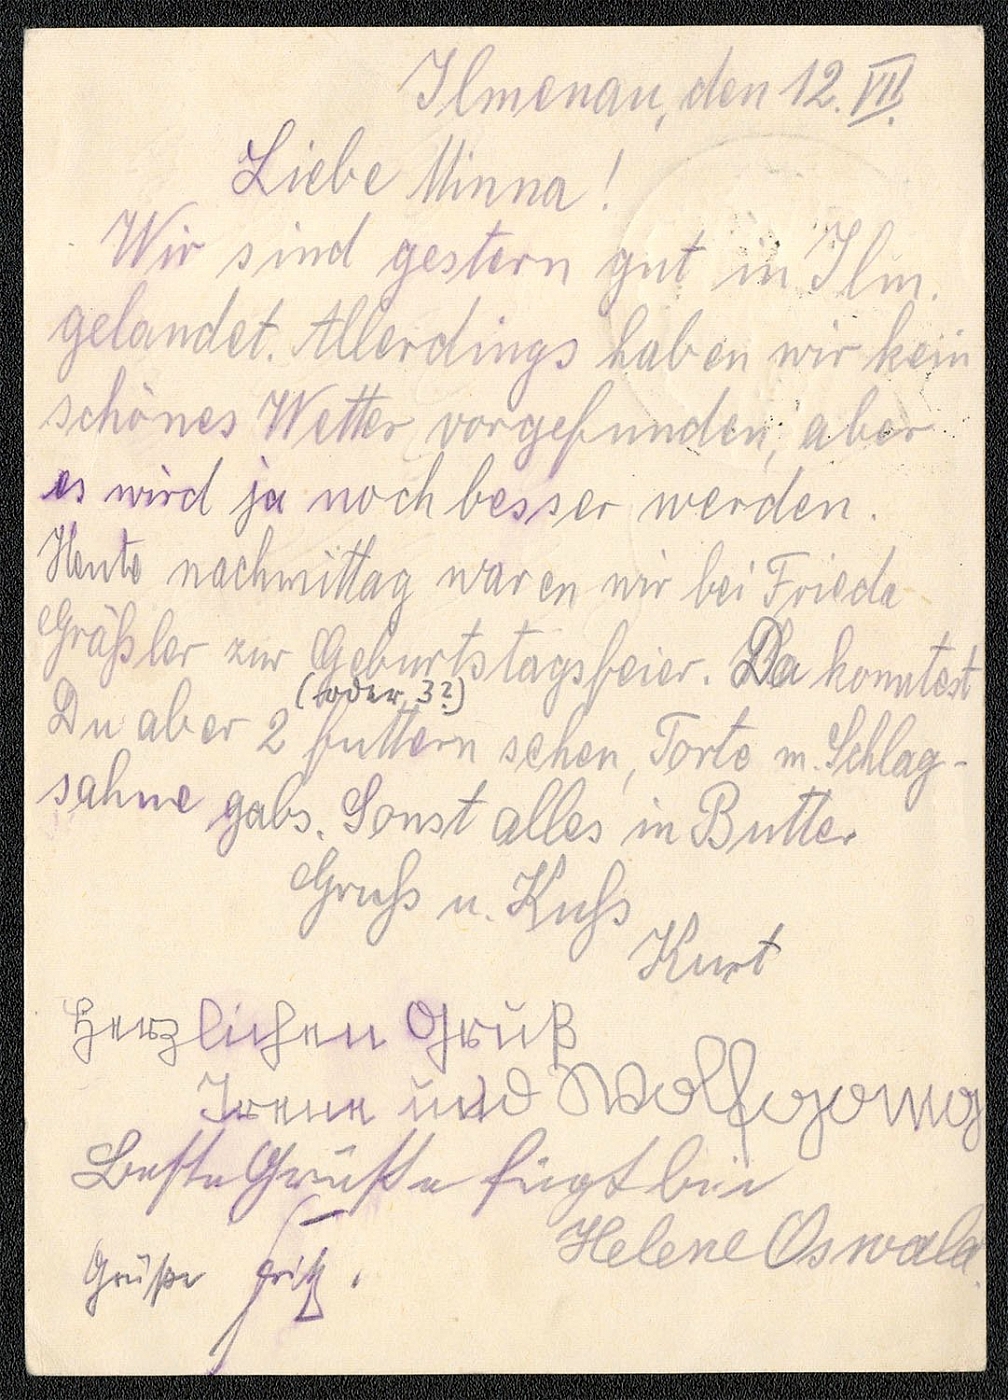 Ilmenau, den 12. VII.
Liebe Minna!
Wir sind gestern gut in Ilm.
gelandet. Allerdings haben wir kein
schönes Wetter vorgefunden, aber
es wird ja noch besser werden.
Heute nachmittag waren wir bei Frieda
Gräßler zur Geburtstagsfeier. Da konntest
(oder 3?)
Du aber 2 futtern sehen, Torte m. Schlag-
sahne gabs. Sonst alles in Butter
Gruß u. Kuß
Kurt
Herzlichen Gruß
Irene und Wolfgang
Beste Grüße fügt bei
Helene Oswald.
Grüße Fritz.